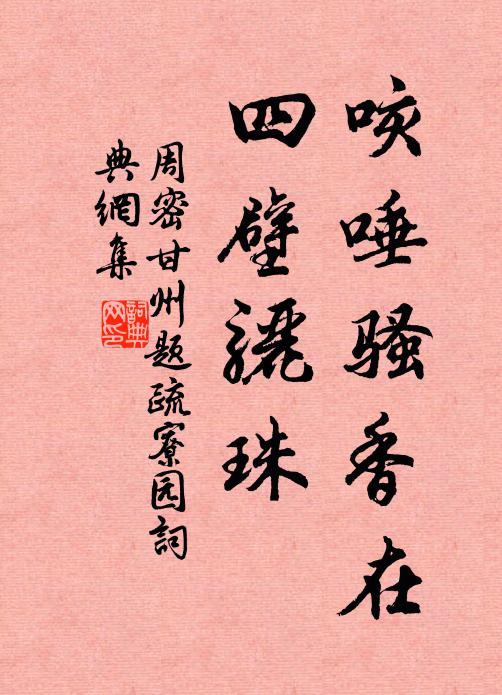 咳唾骚香在
四壁骊珠
周密甘州题疏寮园词
典網集
詞典網印